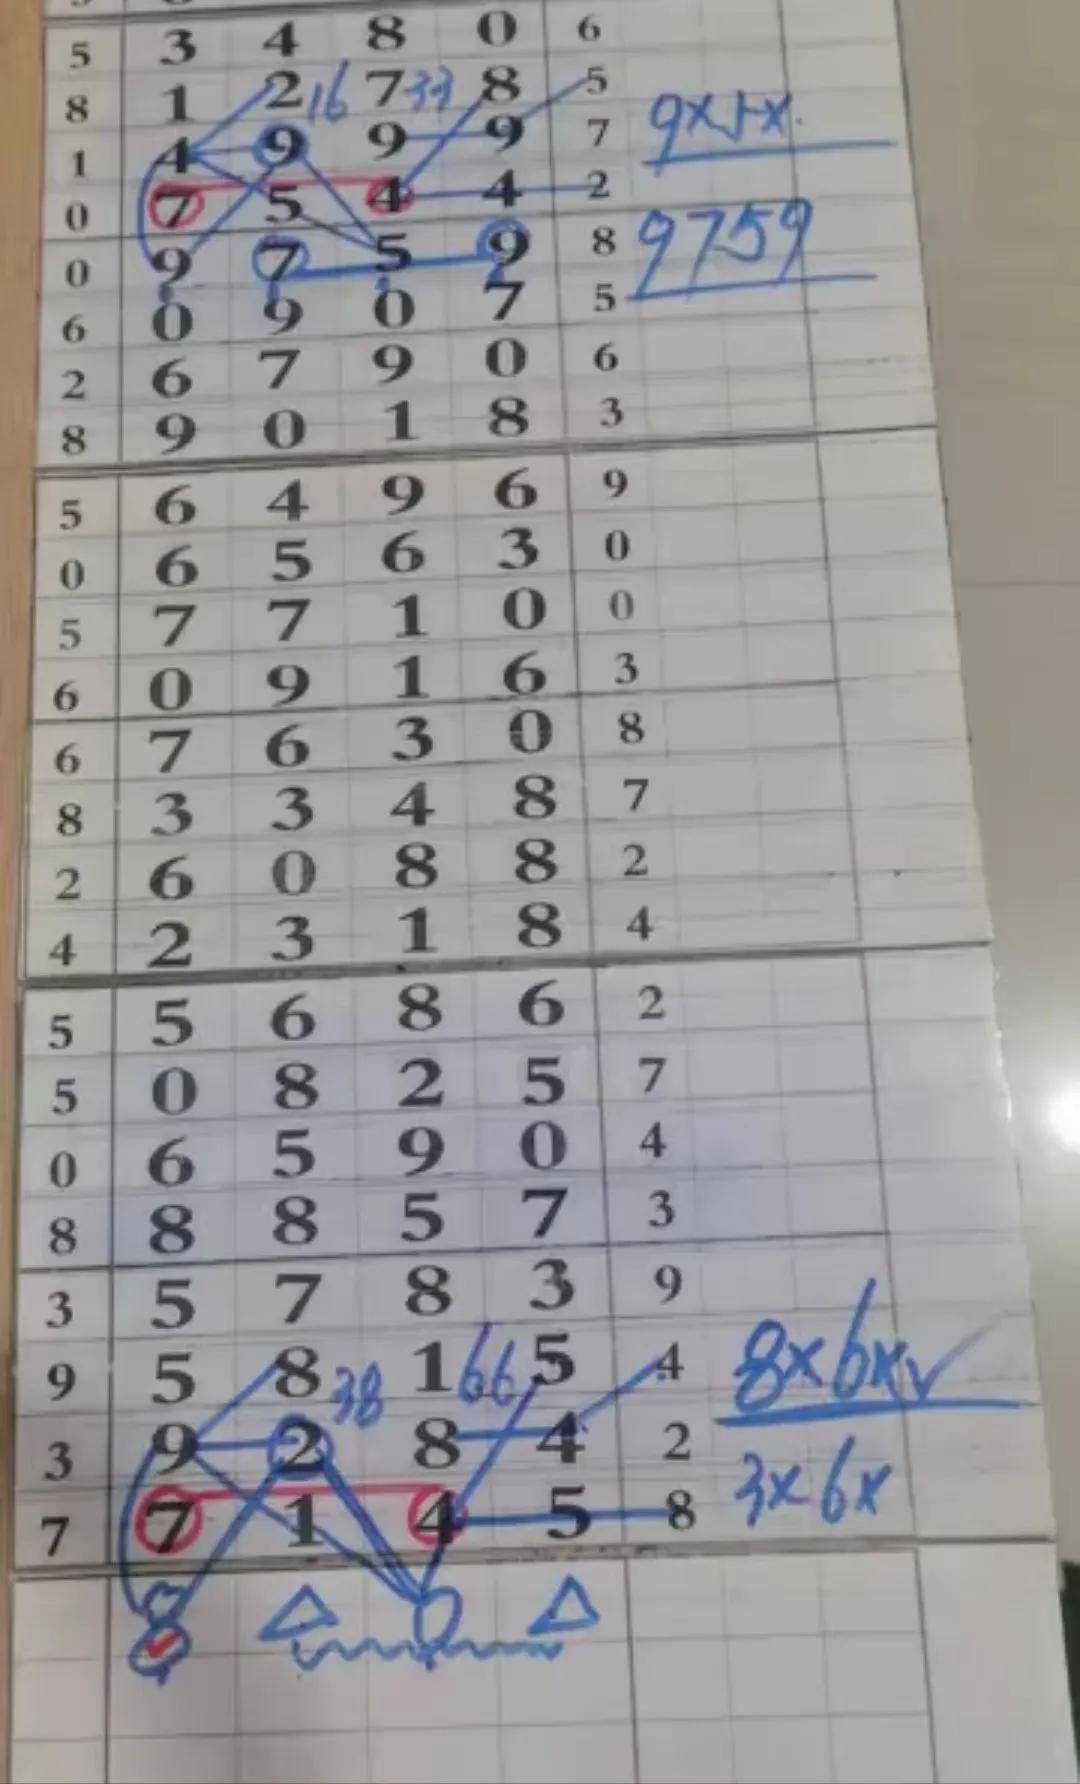 5 3 4 8 0 6
8 1 2 16 7 33 8 5
9x5x.
1 4 9 9 9 7
0 7 5 4 4 2
0 9 7 5 9 8
9759
6 0 9 0 7 5
2 6 7 9 0 6
8 9 0 1 8 3
5 6 4 9 6 9
0 6 5 6 3 0
5 7 7 1 0 0
6 0 9 1 6 3
6 7 6 3 0 8
8 3 3 4 8 7
2 6 0 8 8 2
4 2 3 1 8 4
5 5 6 8 6 2
5 0 8 2 5 7
0 6 5 9 0 4
8 8 8 5 7 3
3 5 7 8 3 9
9 5 8 38 1 66 5 4
8x6x✓
3 9 2 8 4 2
7 7 1 4 5 8
3x6x
8 △ 0 △